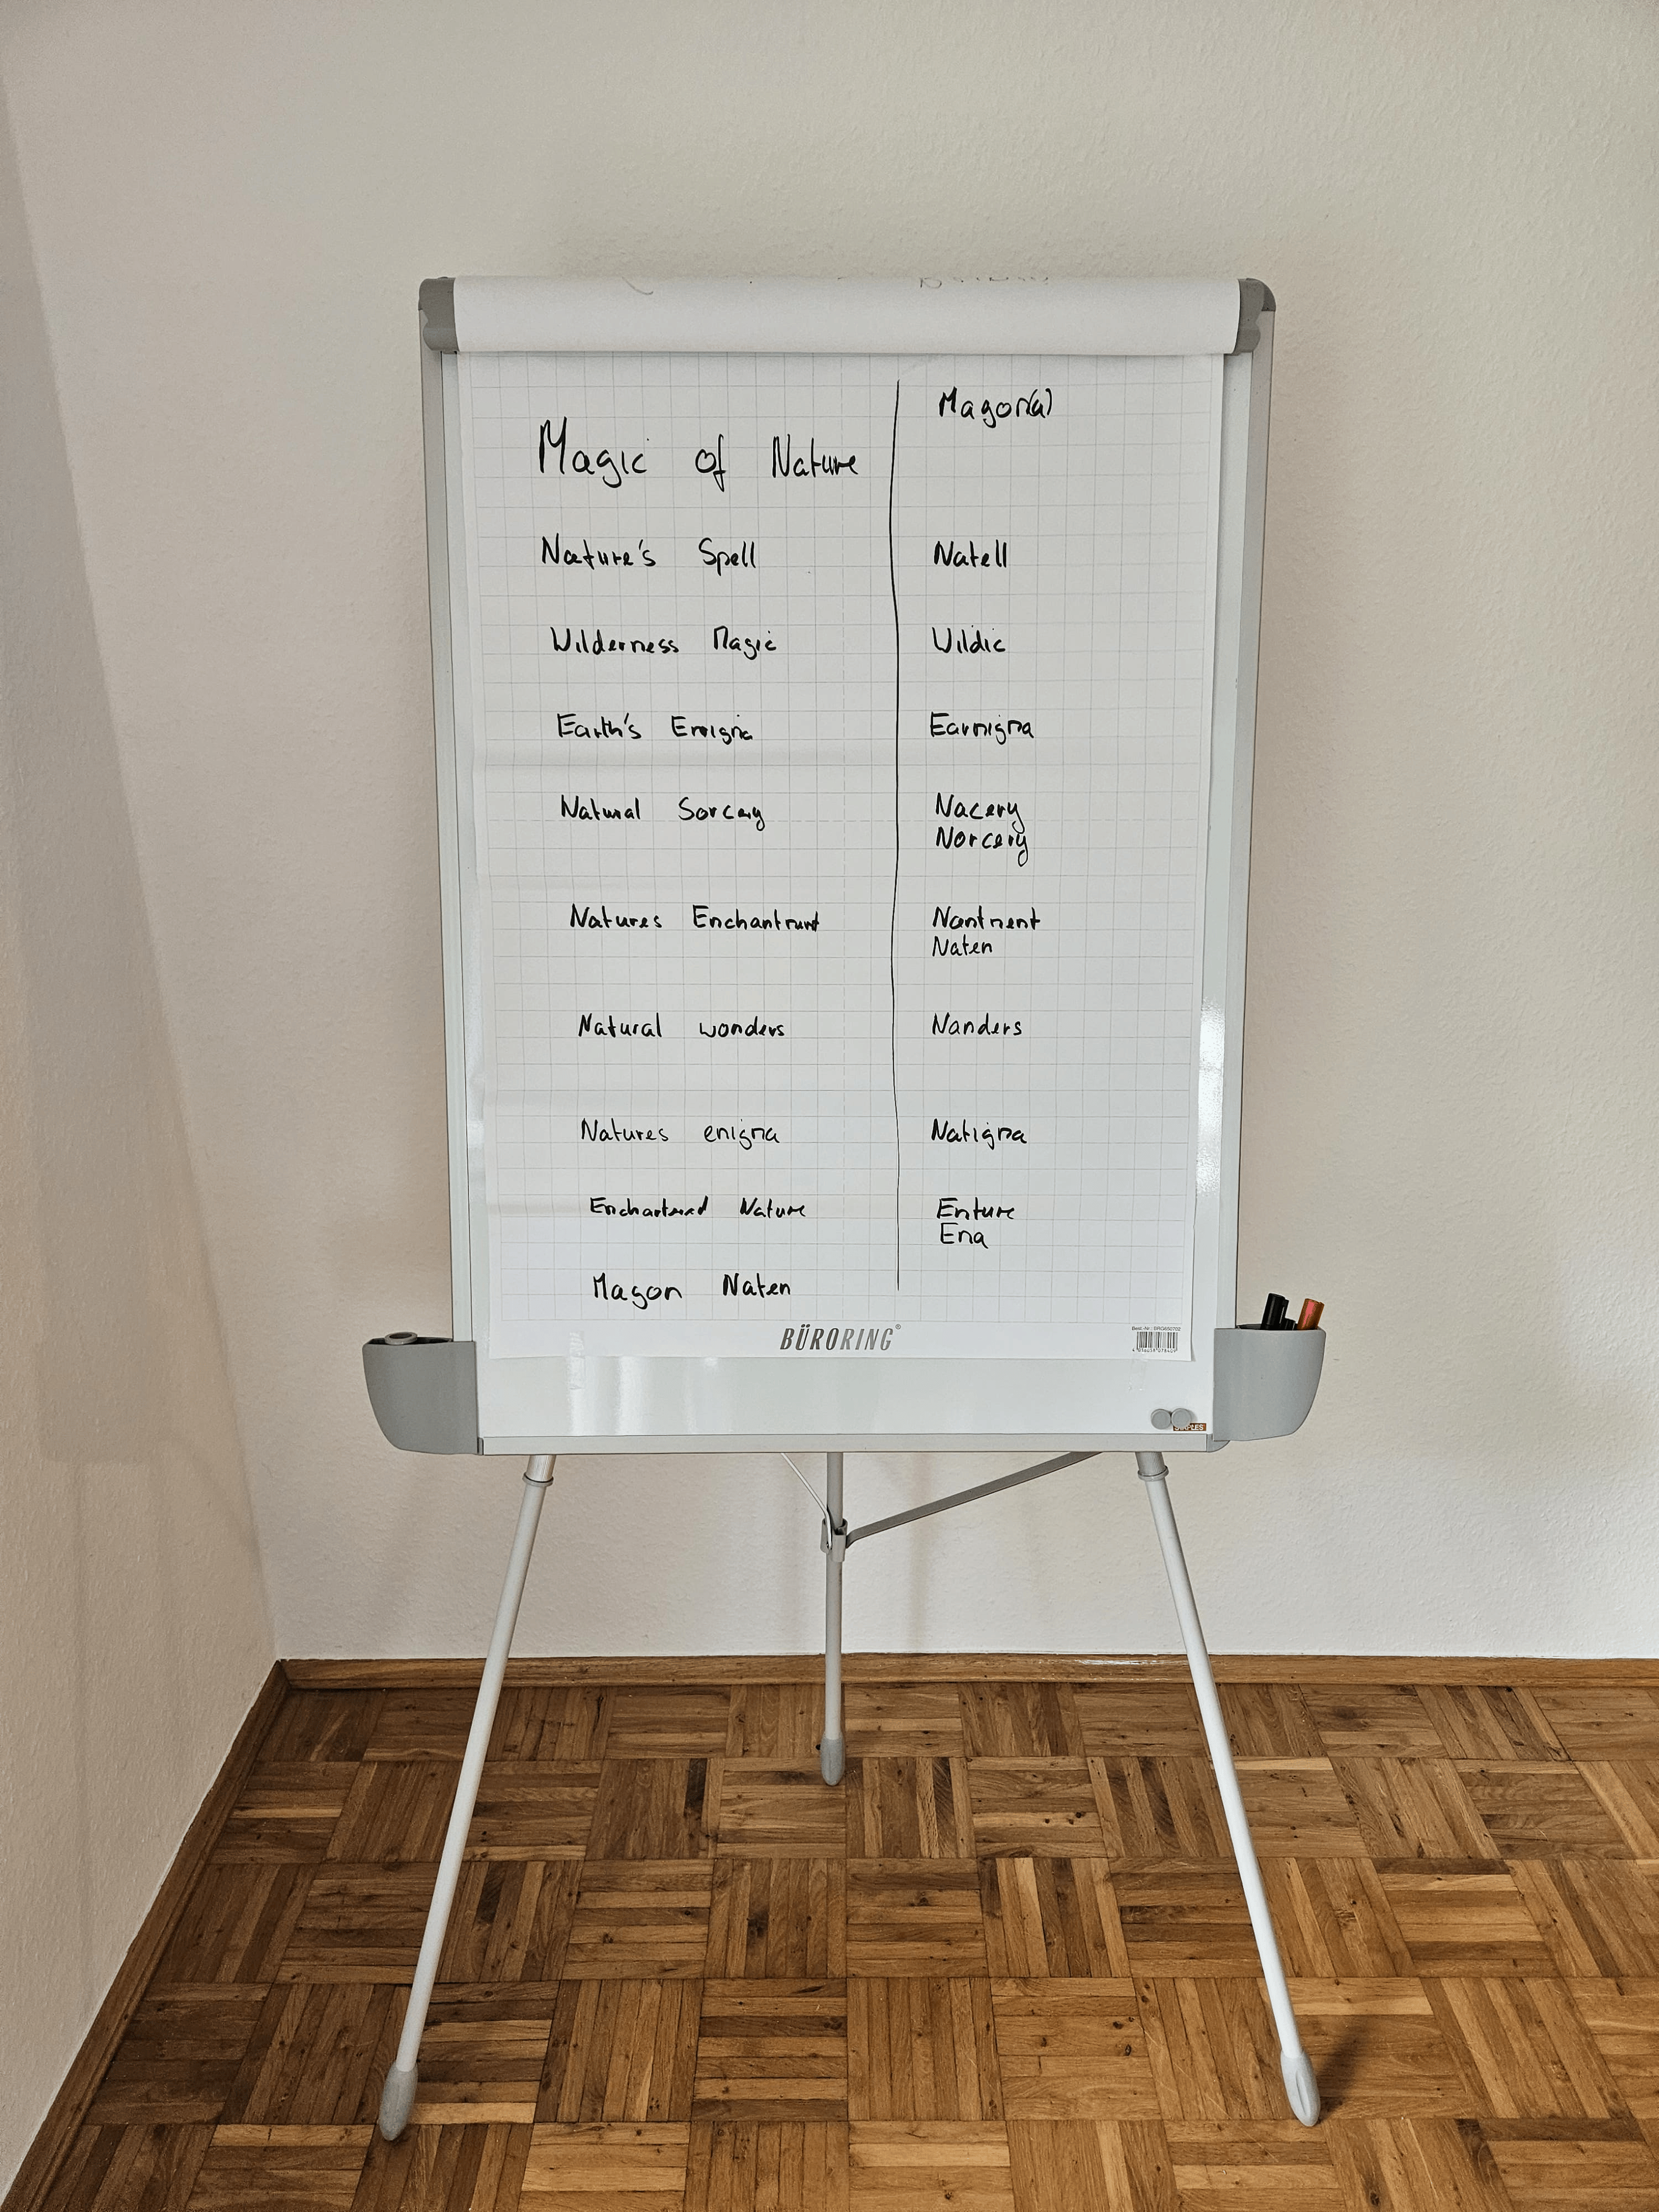 Magon(a)
Magic of Nature
Nature's Spell
Natell
Wilderness Magic
Wildic
Earth's Enigma
Earnigma
Natural Sorcery
Nacery
Norcery
Natures Enchantment
Nantment
Naten
Natural wonders
Nanders
Natures enigma
Natigma
Enchanted Nature
Enture
Ena
Magon Naten
BÜRORING®